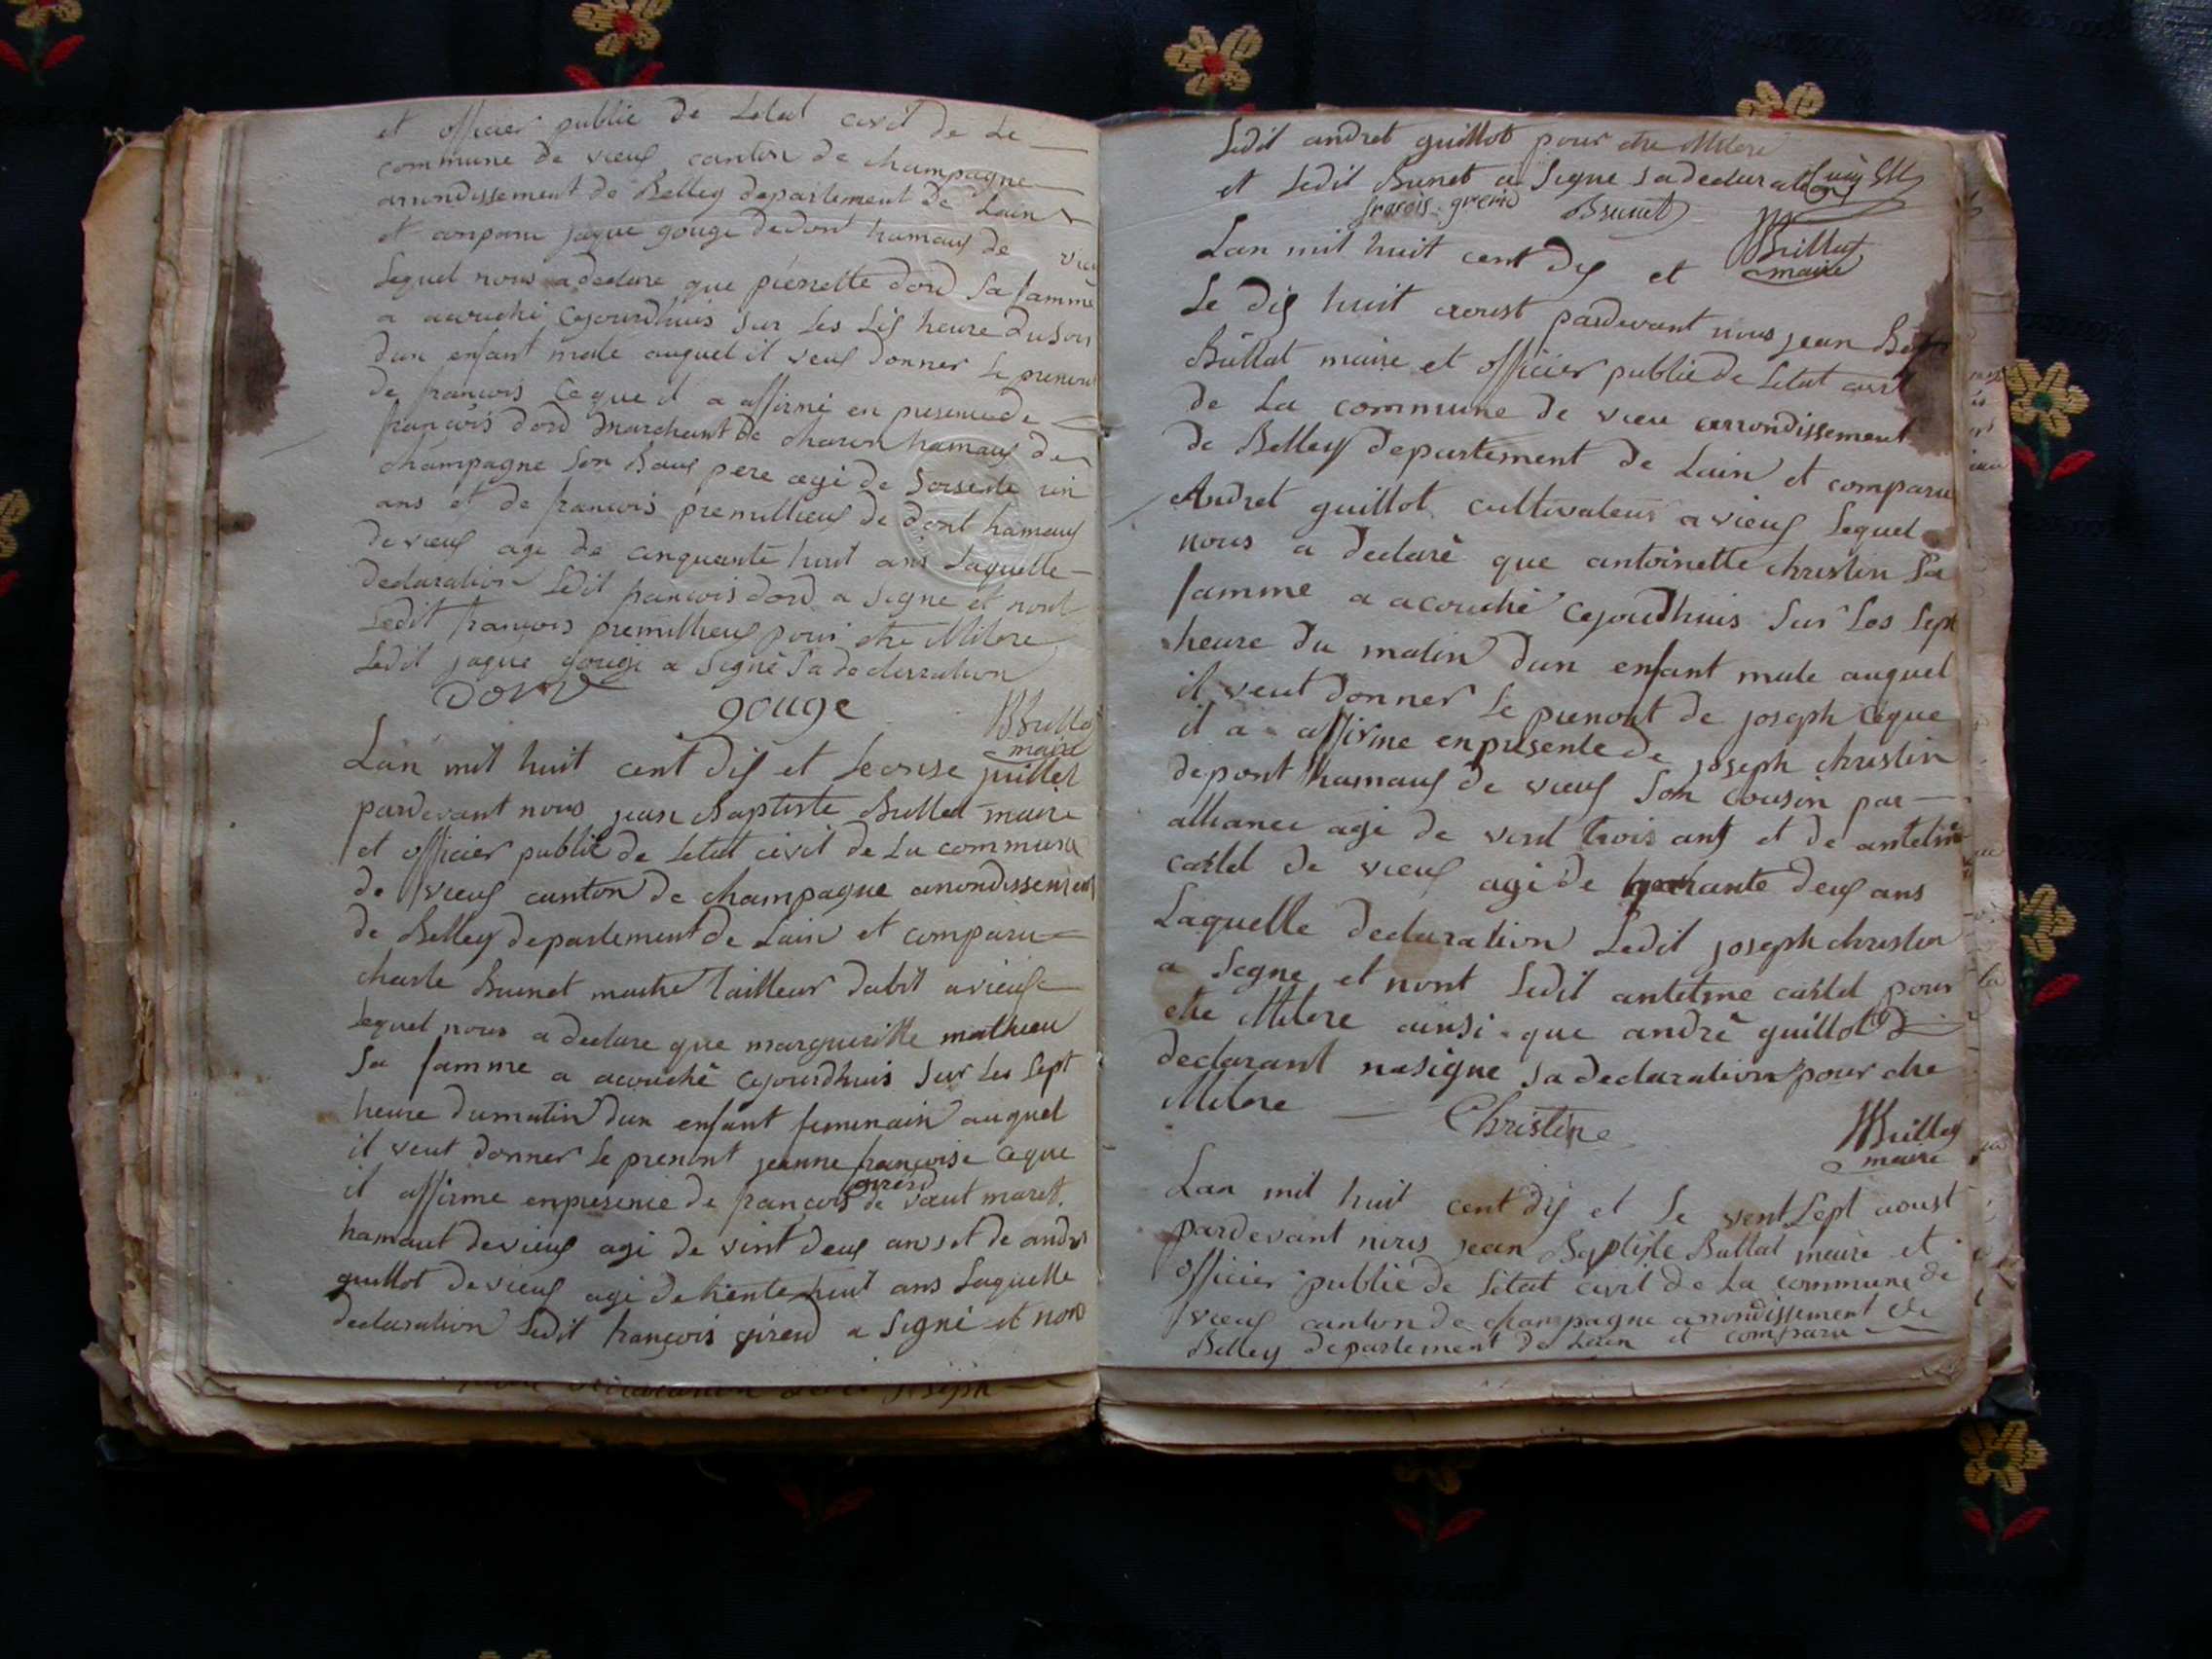 et officier public de Letat civil de Le
commune de vieux canton de champagne
arrondissement de Belley departement de Lain
et conparu jaque gouge dedont hamaux de vieu
Lequel nous a declare que pierrette dord Sa famme
a acouché cejourdhuis Sur Les Six heure du Soir
dun enfant male auquel il veux donner Le prenont
de francois Ceque il a affirmé en presence de
francois dord marchant de charon hamaux de
champagne Son Baux pere agé de Soisente
ans et de francois premillieux de dont hamaux
de vieux age de cinquante huit ans Laquelle
declaration Ledit francois dord a Signe et nont
Ledit francois premillieux pour etre Mitere
Ledit jaque gouge a Signé Sa declarration
Dord gouge JBBullat
maire
Lan mil huit cent dix et Leonse juillet
pardevant nous jean Baptiste Bullat maire
et officier public de Letat civil de La commune
de vieux canton de champagne arrondissement
de Belley departement de Lain et comparu
charle Bunet maitre tailleur dabit a vieux
Lequel nous a declare que margueritte mathieu
Sa famme a acouché cejourdhuis Sur Les Sept
heure dumatin dun enfant femenain auquel
il veut donner Le prenont jeanne francoise Ceque
il affirme enpresence de francois girerd de vaut maret
hamaut de vieux agé de vint deux ans et de andre
guillot de vieux agé de trente huit ans Laquelle
declaration Ledit françois girerd a Signé et non
Ledit andret guillot pour etre Mitere
et Ledit Bunet a Signe Sa declaration
francois grerd Brunet
JBBullat
maire
Lan mil huit cent dix et
Le dix huit aoust pardevant nous jean Bapt
Bullat maire et officier public de Letat civil
de La commune de vieu arrondissement
de Belley departement de Lain et comparu
Andret guillot cultivateur a vieux Lequel
nous a declaré que antoinette christin Sa
famme a acouché cejourdhuis Sur Les Sept
heure du matin dun enfant male auquel
il veut donner Le prenont de joseph Ceque
il a affirme enpresente de joseph christin
depont hamaux de vieux Son cousin par
alliance agé de vent trois ans et de antelme
castel de vieux agé de quarante deux ans
Laquelle declaration Ledit joseph christin
a Segne et nont Ledit antelme castel pour
etre Mitere ainsi que andré guillot
declarant nasigne Sa declaration pour etre
Mitere Christine JBBullat
maire
Lan mil huit cent dix et Le vent Sept aoust
pardevant nous jean Baptiste Bullat maire et
officier public de Letat civil de La commune de
vieux canton de champagne arrondissement de
Belley departement de Lain et comparu